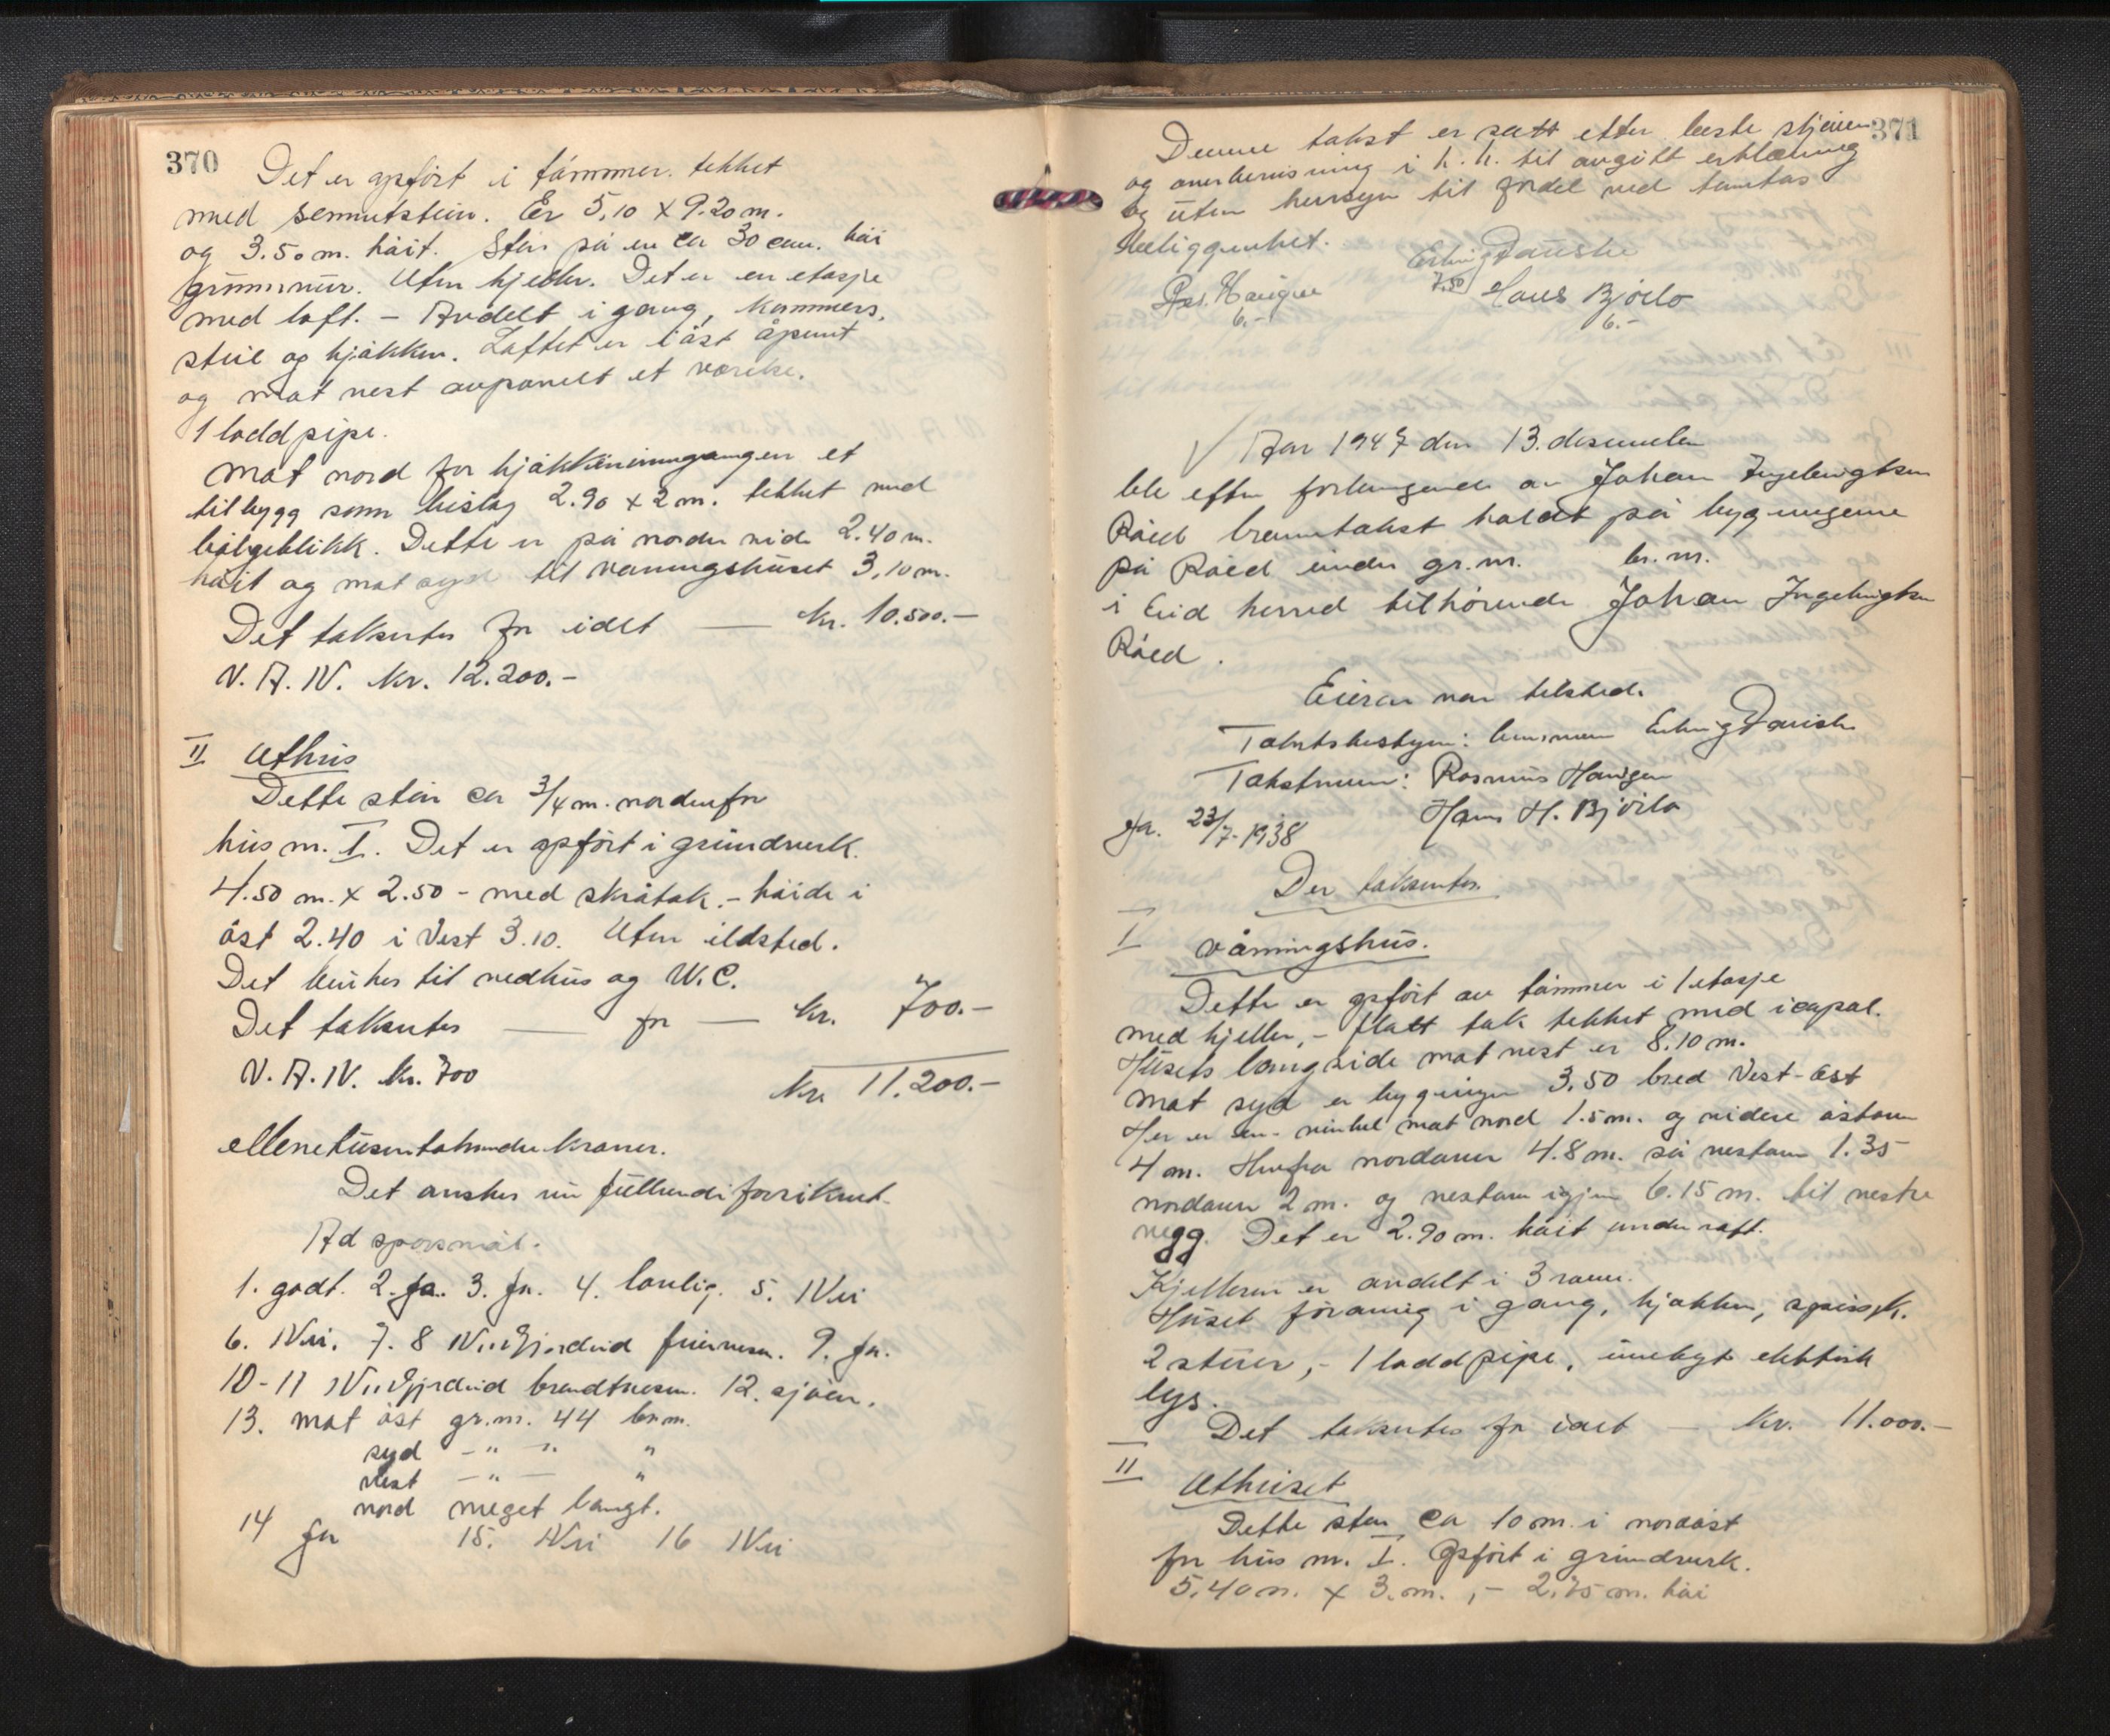 370
Det er opført i tømmer. tekket
med sementstein. Er 5,10 x 9.20 m.
og 3.50 m. høit. Står på en ca 30 cm. høi
grunnmur. Uten kjeller. Det er en etasje
med loft. - Avdelt i gang, kammers,
stue og kjøkken. Loftet er i øst åpent
og mot vest avpanelt et værelse.
1 loddpipe.
Mot nord for kjøkkeninngangen et
tilbygg som bislag 2.90 x 2 m. tekket med
bølgeblikk. Dette er på nordre side 2.40 m.
høit og mot syd til våningshuset 3,10 m.
Det takseres for idet — kr. 10.500.-
V. A. N. kr. 12.200.-
II Uthus
Dette står ca 3/4 m. nordenfor
hus nr. I. Det er opført i grindverk.
4.50 m. x 2.50 - med skråtak. - høide i
øst 2.40 i Vest 3.10. Uten ildsted.
Det brukes til vedhus og W.C.
Det takseres — for — kr. 700.-
V. A. N. kr. 700
kr. 11.200.-
ellevetusentohundre kroner.
Det ønskes nu fullverdiforsikret.
Ad spørsmål.
1. godt. 2. ja. 3. ja. 4. lovlig. 5. Nei
6. Nei. 7. 8 Nordfjordeid feiervesen. 9. ja.
10-11 Nordfjordeid brandvesen. 12. sjøen.
13. mot øst gr.nr. 44 br.nr.
syd - " - "
vest - " - "
nord meget langt.
14 ja 15. Nei 16 Nei
371
Denne takst er satt efter beste skjønn
og overbevisning i h. h. til avgitt erklæring
og uten hensyn til fordel ved tomtas
beliggenhet.
Erling Dauske
7,50
Ras. Haugen Hans Bjørlo
6.- 6.-
√ Aar 1947 den 13. desember
ble efter forlangende av Johan Ingebrigtsen
Råed branntakst holdt på bygningene
på Råed under gr.nr. br.nr.
i Eid herred tilhørende Johan Ingebrigtsen
Råed.
Eieren var tilstede.
Takstbestyrer: lensmann Erling Dauske
Takstmenn: Rasmus Haugen
Hans H. Bjørlo
23/7-1938
Der takseres.
I Våningshus.
Dette er opført av tømmer i 1 etasje
med kjeller, - flatt tak tekket med icopal.
Husets langside mot vest er 8.10 m.
mot syd er bygningen 3.50 bred Vest-Øst
Her er en vinkel mot nord 1.5 m. og videre østover
4 m. Herfra nordover 4.8 m. så vestover 1.35
nordover 2 m. og vestover igjen 6.15 m. til vestre
vegg. Det er 2.90 m. høit under raft.
Kjelleren er avdelt i 3 rom.
Huset forøvrig i gang, kjøkken, spissk.
2 stuer, - 1 loddpipe, innlagt elektrisk
lys.
Det takseres for idet — kr. 11.000.-
II Uthuset
Dette står ca 10 m. i nordøst
for hus nr. I. Opført i grindverk.
5,40 m. x 3. m., - 2,75 m. høi